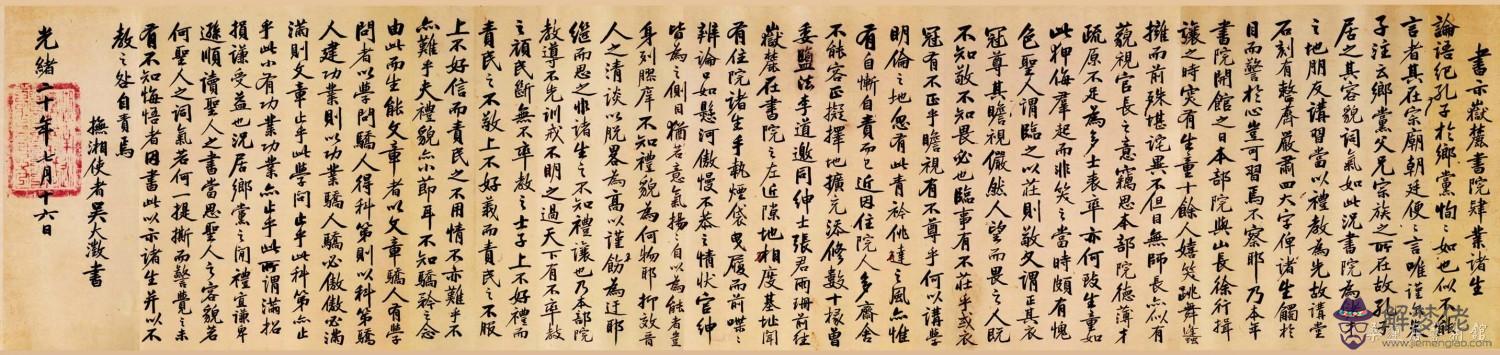 書示嶽麓書院肄業諸生
論語紀孔子於鄉黨恂恂如也似不能
言者其在宗廟朝廷便便言唯謹
子注云鄉黨父兄宗族之所在故孔
居之其容貌詞氣如此況書院為
之地朋友講習當以禮教為先故講堂
石刻有整齊嚴肅四大字俾諸生觸於
目而警於心豈可習焉不察耶乃本年
書院開館之日本部院與山長徐行揖
讓之時突有生童十餘人嬉笑跳舞蜂
擁而前殊堪詫異不但目無師長亦以有
藐視官長之意竊思本部院德薄才
疏原不足為多士表率亦何致生童如
此狎侮羣起而非笑之當時頗有愧
色聖人謂臨之以莊則敬又謂正其衣
冠尊其瞻視儼然人望而畏之人既
不知敬不知畏必也臨事有不莊乎或衣
冠有不正乎瞻視有不尊乎何以講學
明倫之地忽有此青衿佻達之風亦惟
有自慚自責而已近因住院人多齋舍
不能容正擬擇地擴充添修數十椽曾
委鹽法李道邀同紳士張君雨珊前往
嶽麓在書院之左近隙地相度基址聞
有住院諸生手執煙袋曳履而前喋喋
辨論口如懸河傲慢不恭之情狀官紳
皆為之側目猶若意氣揚揚自以為能者豈
身列膠庠不知禮貌為何物耶抑效晉
人之清談以脫畧為高以謹飭為迂耶
繼而思之非諸生之不知禮讓也乃本部院
教導不先訓戒不明之過天下有不率教
之頑民斷無不率教之士子上不好禮而
責民之不敬上不好義而責民之不服
上不好信而責民之不用情不亦難乎不
亦難乎夫禮貌亦小節耳不知驕矜之念
由此而生能文章者以文章驕人有學
問者以學問驕人得科第則以科第驕
人建功業則以功業驕人驕必傲傲必滿
滿則文章止乎此學問止乎此科第亦止
乎此小有功業功業亦止乎此所謂滿招
損謙受益也況居鄉黨之間禮宜謙卑
遜順讀聖人之書當思聖人之容貌若
何聖人之詞氣若何一提撕而警覺之未
有不知悔悟者因書此以示諸生并以不
教之咎自責焉
撫湘使者吳大澂書
光緒二十年七月十六日
解梦佬
www.jiemenglao.com